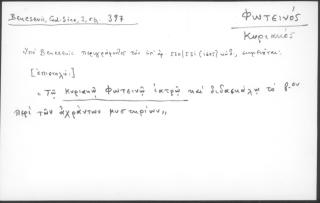 Benesevic, Cod. Sinα, I, σελ. 397
Φωτεινός
Κυριακός
Ὑπὸ Benesevic περιγράφεται τὸν ὑπ' ἀρ. 530/531 (1605) κώδ., σημειοῦται:
[ἐπιστολή]:
"Τῷ Κυριακῷ Φωτεινῷ ἰατρῷ καὶ διδασκάλῳ τὸ β-ον
περὶ τῶν ἀχράντων μυστηρίων"